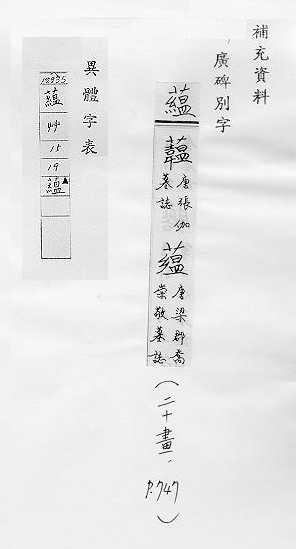 補充資料
廣碑別字
蘊
唐張伽
墓誌
蘊
唐梁郡喬
崇敬墓誌
(二十畫, P.747)
異體字表
蘊
艸
15
19
蘊